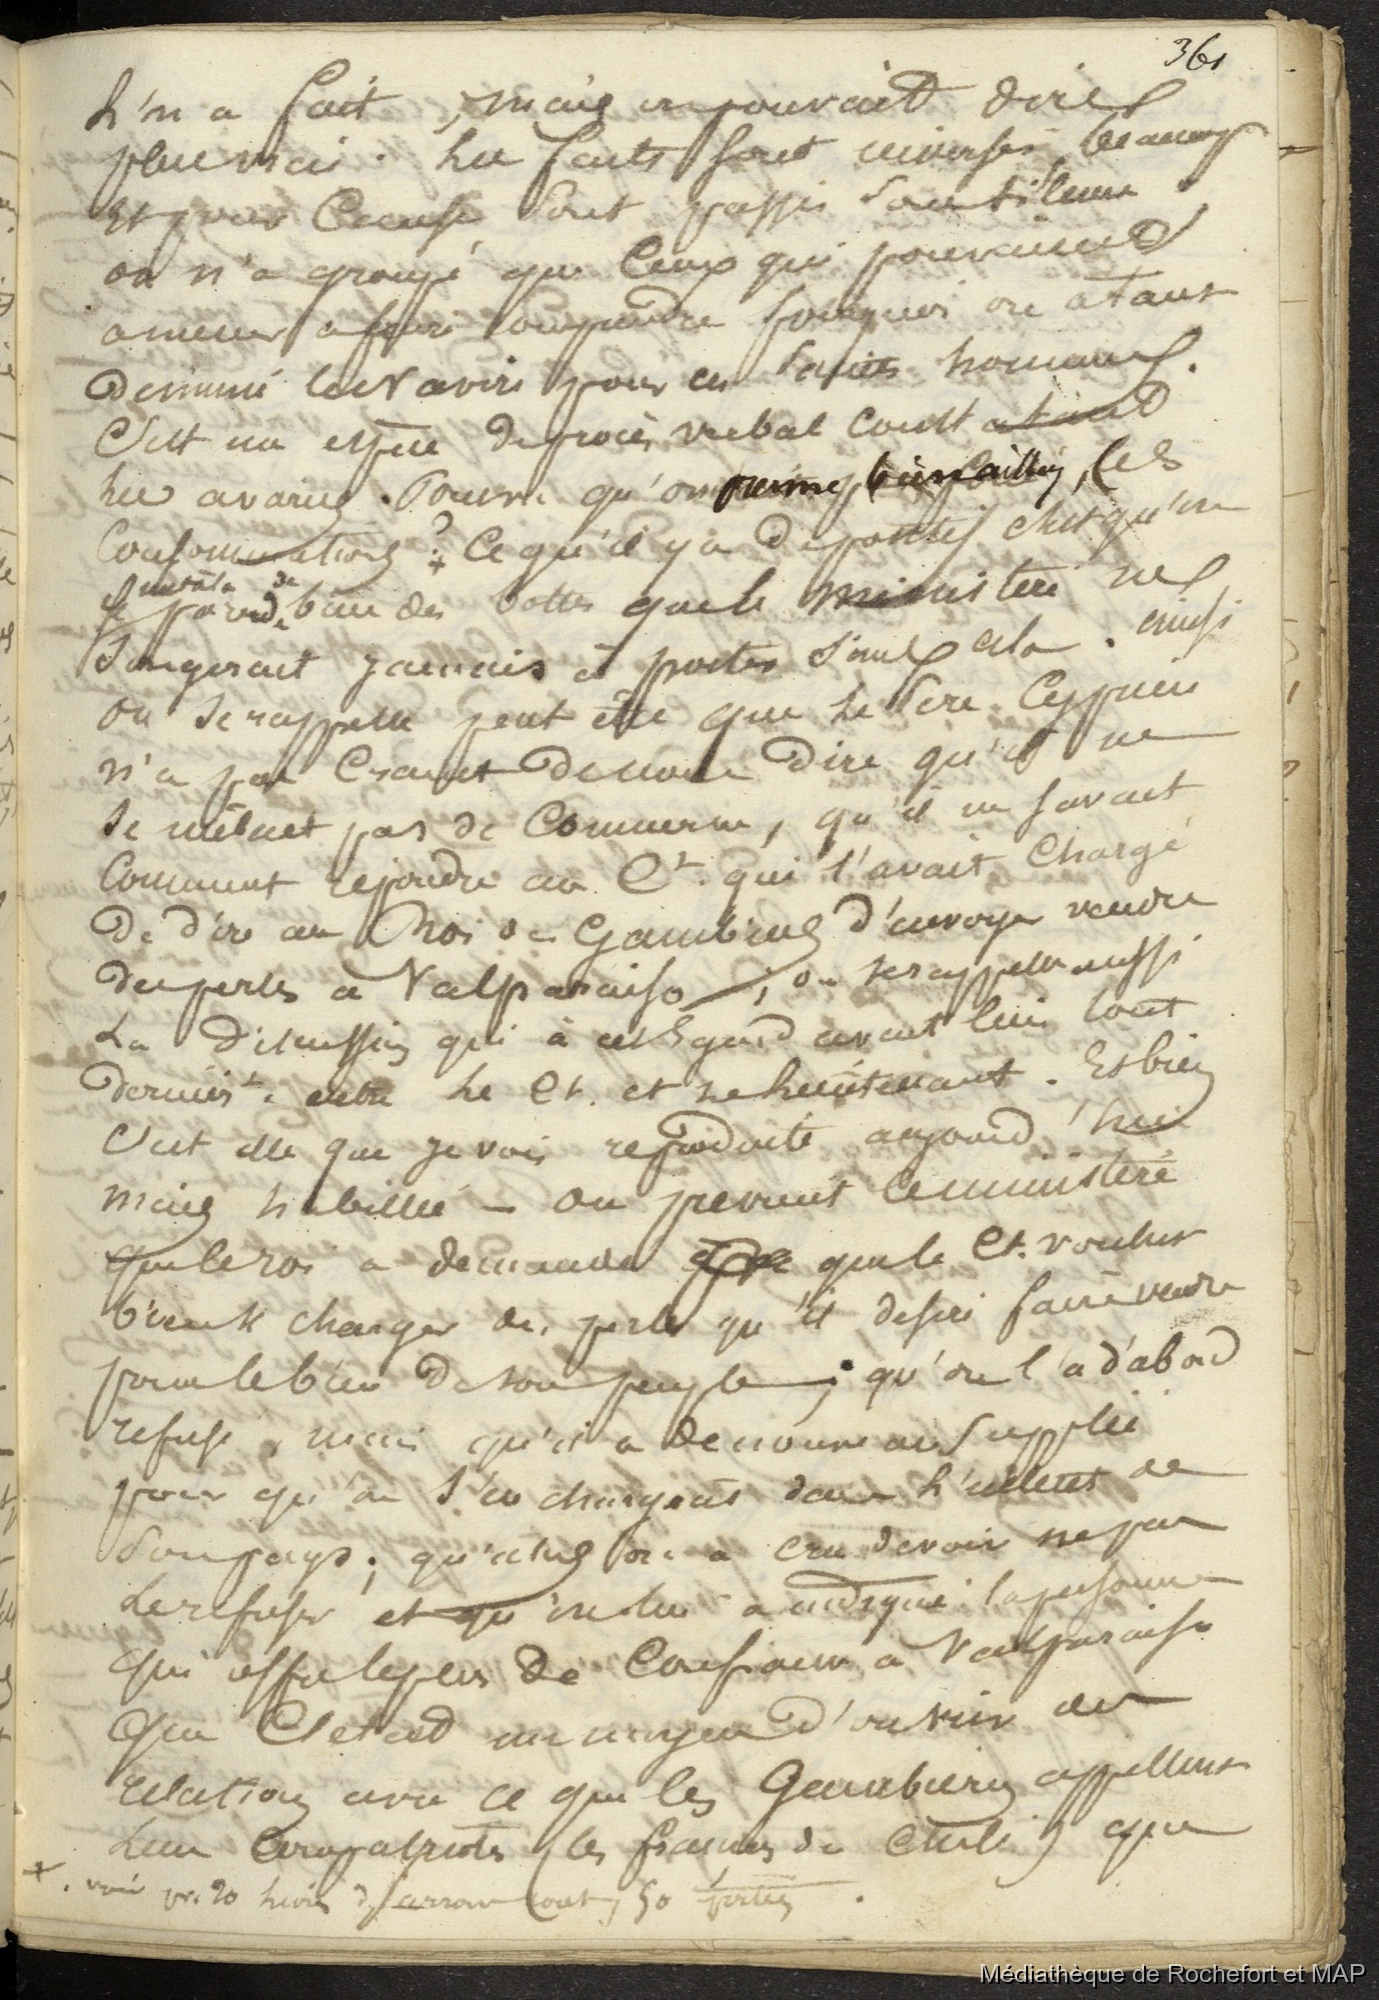 361
L'on a fait, mais on pouvait dire
plus vrai. Les faits sont renversés, beaucoup
Et pour cause sont passés sous silence
on n'a groupé que ceux qui pouvaient
amener à faire comprendre pourquoi on a tant
démuni le Navire pour ces Saints hommes.
C'est une espèce de procès verbal constatant
les avaries. Pourvu qu'on les
Consommations? + Ce qu'il y a de positif c'est qu'on
bien des bottes que le ministère ne
songerait jamais à porter sans cela. ainsi
on se rappelle peut être que le Père Cyprien
n'a pas craint de nous dire qu'il ne
se mêlait pas de commerce, qu'il ne savait
Comment répondre au Ct. qui l'avait chargé
De dire au Roi des Gambiers d'envoyer vendre
des perles à Valparaiso; on se rappelle aussi
La discussion qui à cet Egard avait lieu tout
dernièrt. entre le Ct. et le lieutenant. Et bien
C'est elle que je vois reproduite aujourd'hui
mais habillée — on prévient le ministère
que le roi a demandé que le Ct. voulut
bien se charger des perles qu'il desire faire vendre
pour le bien de son peuple; qu'on l'a d'abord
refusé, mais qu'il a de nouveau supplié
pour qu'on s'en chargeât dans l'intérêt de
Son pays; qu'alors on a cru devoir ne pas
Le refuser et qu'on lui a indiqué la personne
qui de Confiance à Valparaiso
Que C'était un moyen d'ouvrir des
relations avec ce que les Gambiers appellent
leurs compatriotes (les français du Chili) que
+. voir 20 livres de savon 50
Médiathèque de Rochefort et MAP